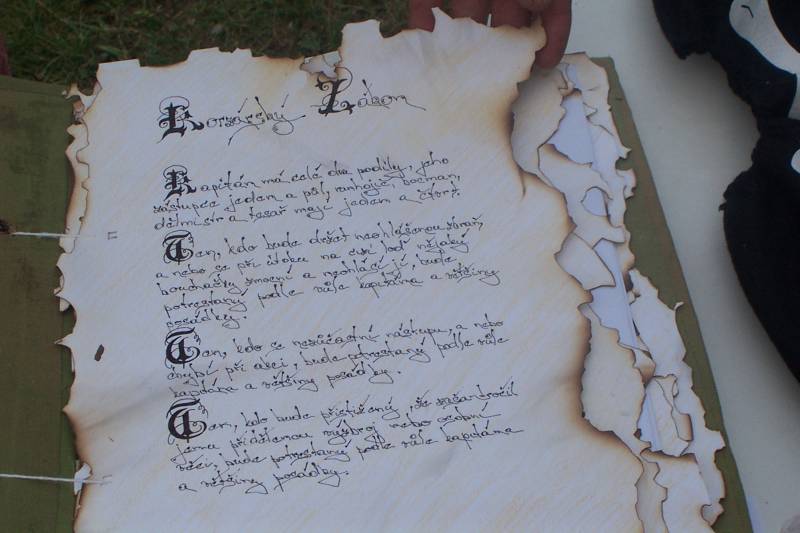 Korzárský Zákon
Kapitán má celé dva podíly, jeho
zástupce jeden a půl, ranhojič, bocman,
dělmistr a tesař mají jeden a čtvrt.
Ten, kdo bude držet neohlášenou zbraň,
a nebo se při útoku na cizí loď nějaký
zmocní a neohlásí jí, bude
potrestaný podle vůle kapitána a většiny
posádky.
Ten, kdo se nezúčastní nástupu, a nebo
chybí při akci, bude potrestaný podle vůle
kapitána a většiny posádky.
Ten, kdo bude přistižený, že zašantročil
jemu přidělenou výstroj nebo osobní
věci, bude potrestaný podle vůle kapitána
a většiny posádky.